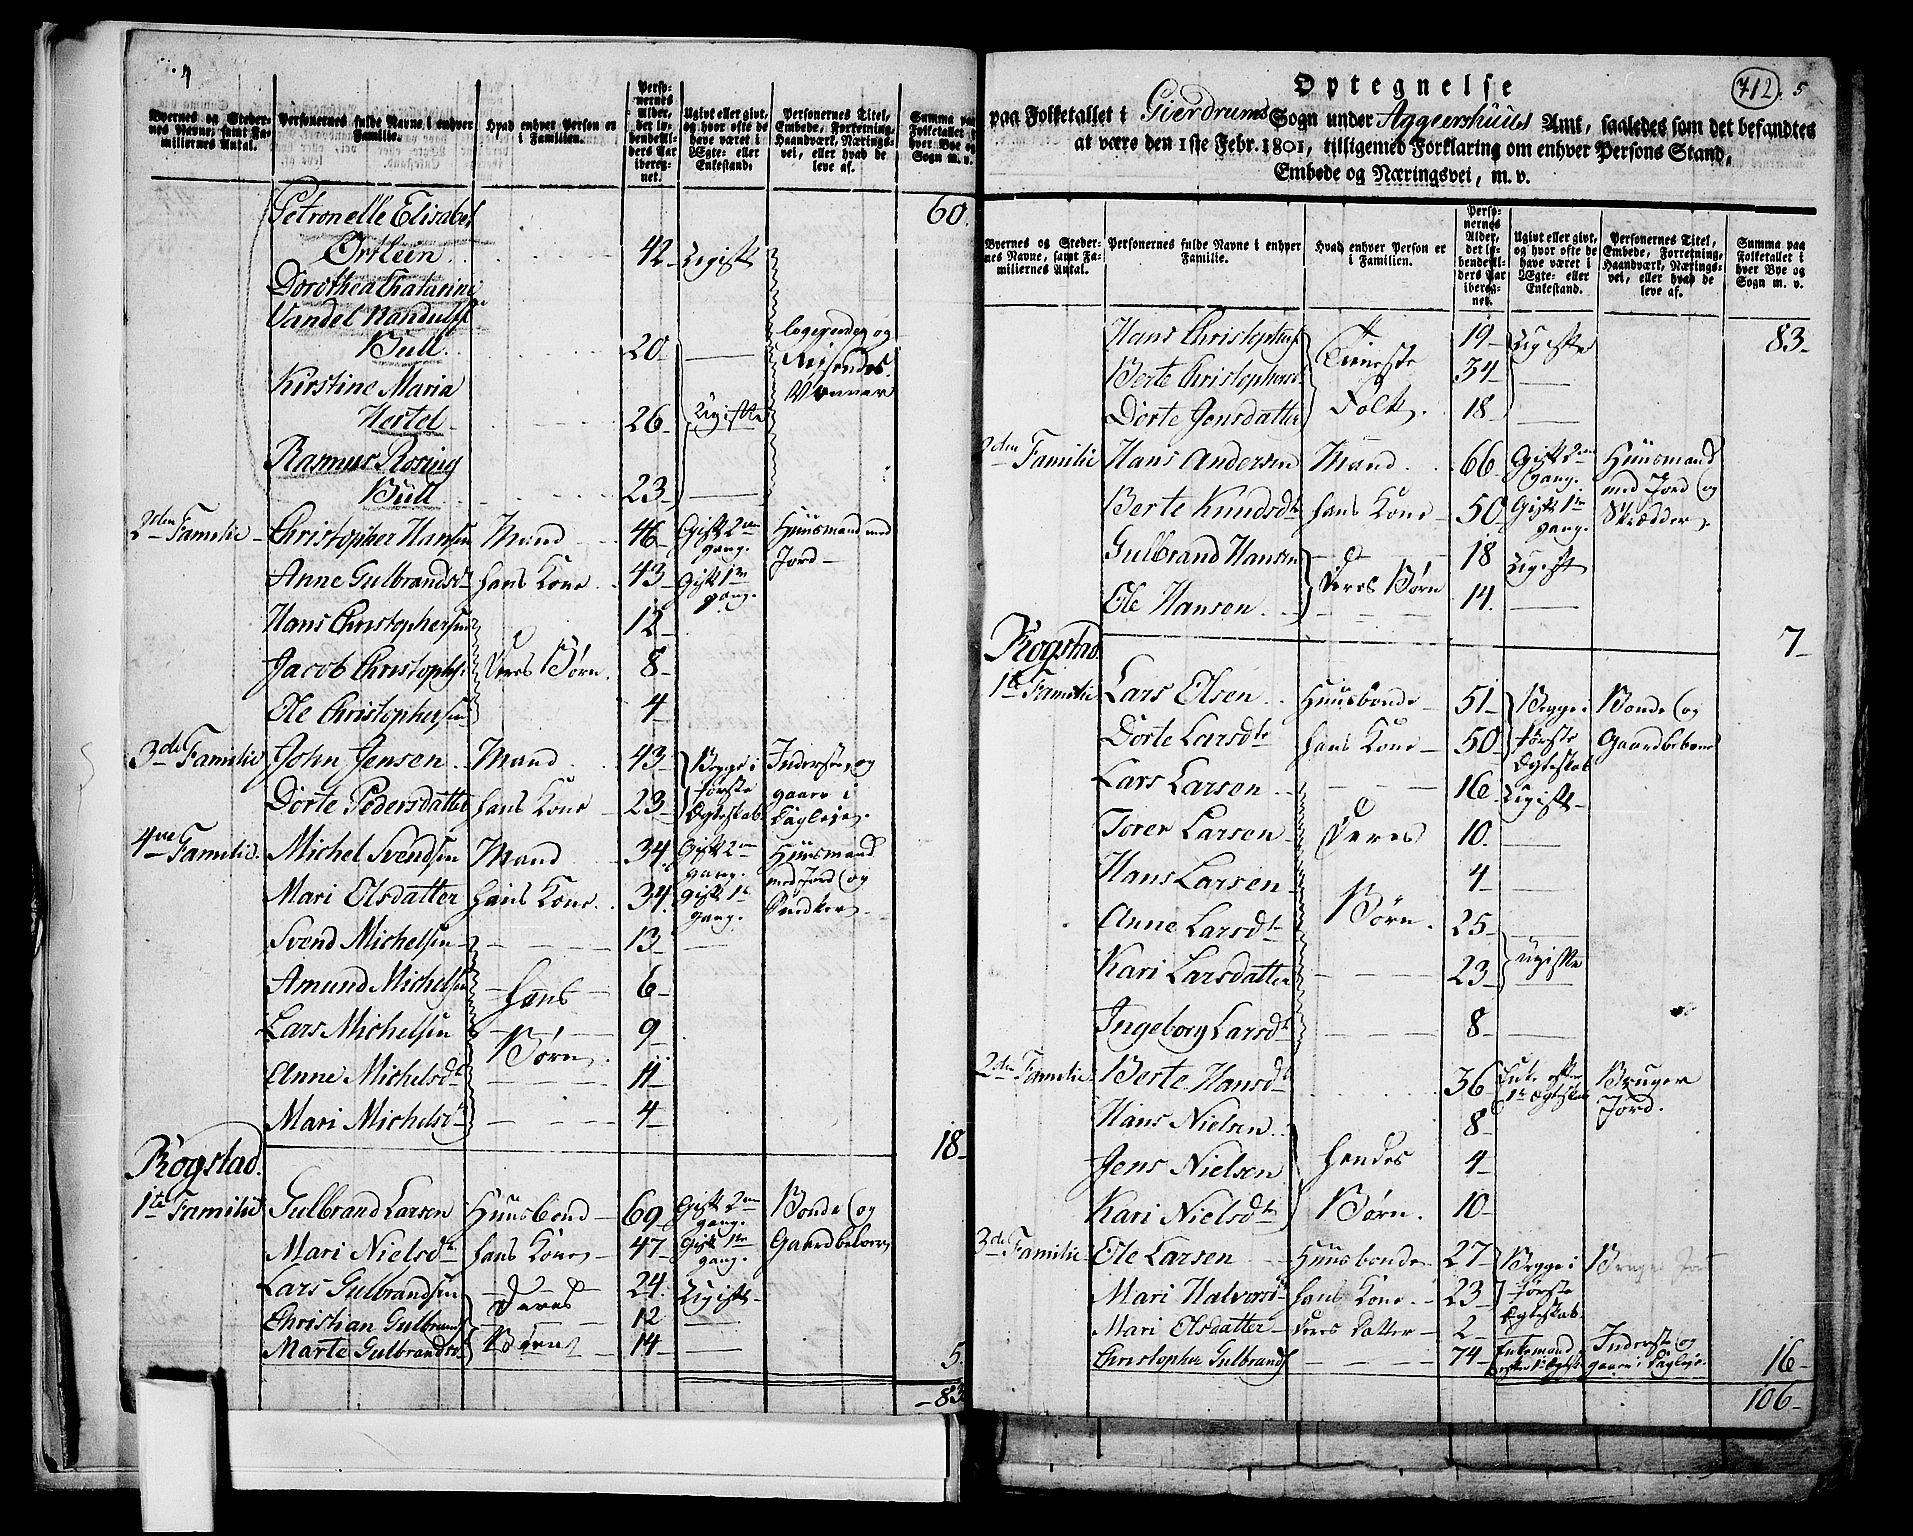 4
Byernes og Stedernes Navne, samt Familiernes Antal.
Personernes fulde Navne i enhver Familie.
Hvad enhver Person er i Familien.
Personernes Alder, det løbendefulde Aar iberegnet.
Ugivt eller givt, og hvor ofte de have været i Ægte- eller Enkestand.
Personernes Titel, Embede, Forretning, Haandværk, Næringsvei, eller hvad de leve af.
Summa paa Folketallet i hver Bye og Sogn m. v.
Petronelle Elisabet 60.
Ørtlein 42 Ugift
Dorothea Chatarine
Vandel Randulff
Bull 20 logerende og Reisendes Venner
Kirstine Maria
Hertel 26 Ugifte
Rasmus Rosing
Bull 23
2den Familie Christopher Hansen Mand 46 Gift 2den gang. Huusmand med Jord
Anne Gulbrandsdtr hans Kone 43 Gift 1te gang.
Hans Christophersen 12
Jacob Christophers. Deres Børn. 8
Ole Christophersen 4
3de Familie John Jensen Mand 43 Begge i første Ægteskab Inderster og gaaer i Dagleje
Dorte Pedersdatter hans Kone 23
4de Familie. Michel Svendsen Mand 34 Gift 2den gang. Huusmand med Jord og Snedker
Mari Olsdatter hans Kone. 34 Gift 1te gang.
Svend Michelsen 13
Amund Michelsen hans 6
Lars Michelsen 9
Børn
Anne Michelsdtr 11
Mari Michelsdtr 4
18
Rogstad.
1te Familie Gulbrand Larsen Huusbond 69 Gift 2den gang. Bonde og Gaardbeboer
Mari Nielsdtr hans Kone 47 Gift 1te gang.
Lars Gulbrandsen Deres 24 Ugift
Christian Gulbrands. 12
Marte Gulbrandsd. Børn 14
5.
83
712. 5
Optegnelse
paa Folketallet i Gierdrums Sogn under Aggershuus Amt, saaledes som det befandtes
at være den 1ste Febr. 1801, tilligemed Forklaring om enhver Persons Stand,
Embede og Næringsvei, m. v.
Byernes og Stedernes Navne, samt Familiernes Antal.
Personernes fulde Navne i enhver Familie.
Hvad enhver Person er i Familien.
Personernes Alder, det løbendefulde Aar iberegnet.
Ugivt eller givt, og hvor ofte de have været i Ægte- eller Enkestand.
Personernes Titel, Embede, Forretning, Haandværk, Næringsvei, eller hvad de leve af.
Summa paa Folketallet i hver Bye og Sogn m. v.
Hans Christophers. 19 Ugifte 83
Berte Christophersd. Tieneste 34
Dorte Jensdatter Folk 18
2den Familie Hans Andersen Mand 66 Gift 2den gang. Huusmand med Jord og Skrædder
Berte Knudsdtr hans Kone 50 Gift 1te gang.
Gulbrand Hansen 18 Ugift
Deres Børn
Ole Hansen 14
7
Rogstad
1te Familie Lars Olsen Huusbonde 51 Begge i første Ægteskab Bonde og Gaardbeboer
Dorte Larsdtr hans Kone 50
Lars Larsen 16 Ugift
Torer Larsen Deres 10
Hans Larsen 4
Børn.
Anne Larsdtr 25
Kari Larsdatter 23 ugifte
Ingeborg Larsdtr 8
2den Familie Berte Hansdtr 36 Enke efter 1te Ægteskab Bruger Jord.
Hans Nielsen 8
Jens Nielsen Hendes 4
Kari Nielsdtr Børn. 10
3de Familie Ole Larsen Huusbonde 27 Begge i første Ægteskab Bruger
Mari Halvorsd. hans Kone 23
Mari Olsdatter deres Datter 2
Christopher Gulbrands. 74 Enkemand Inderste og gaaer i Dagleje 16
106